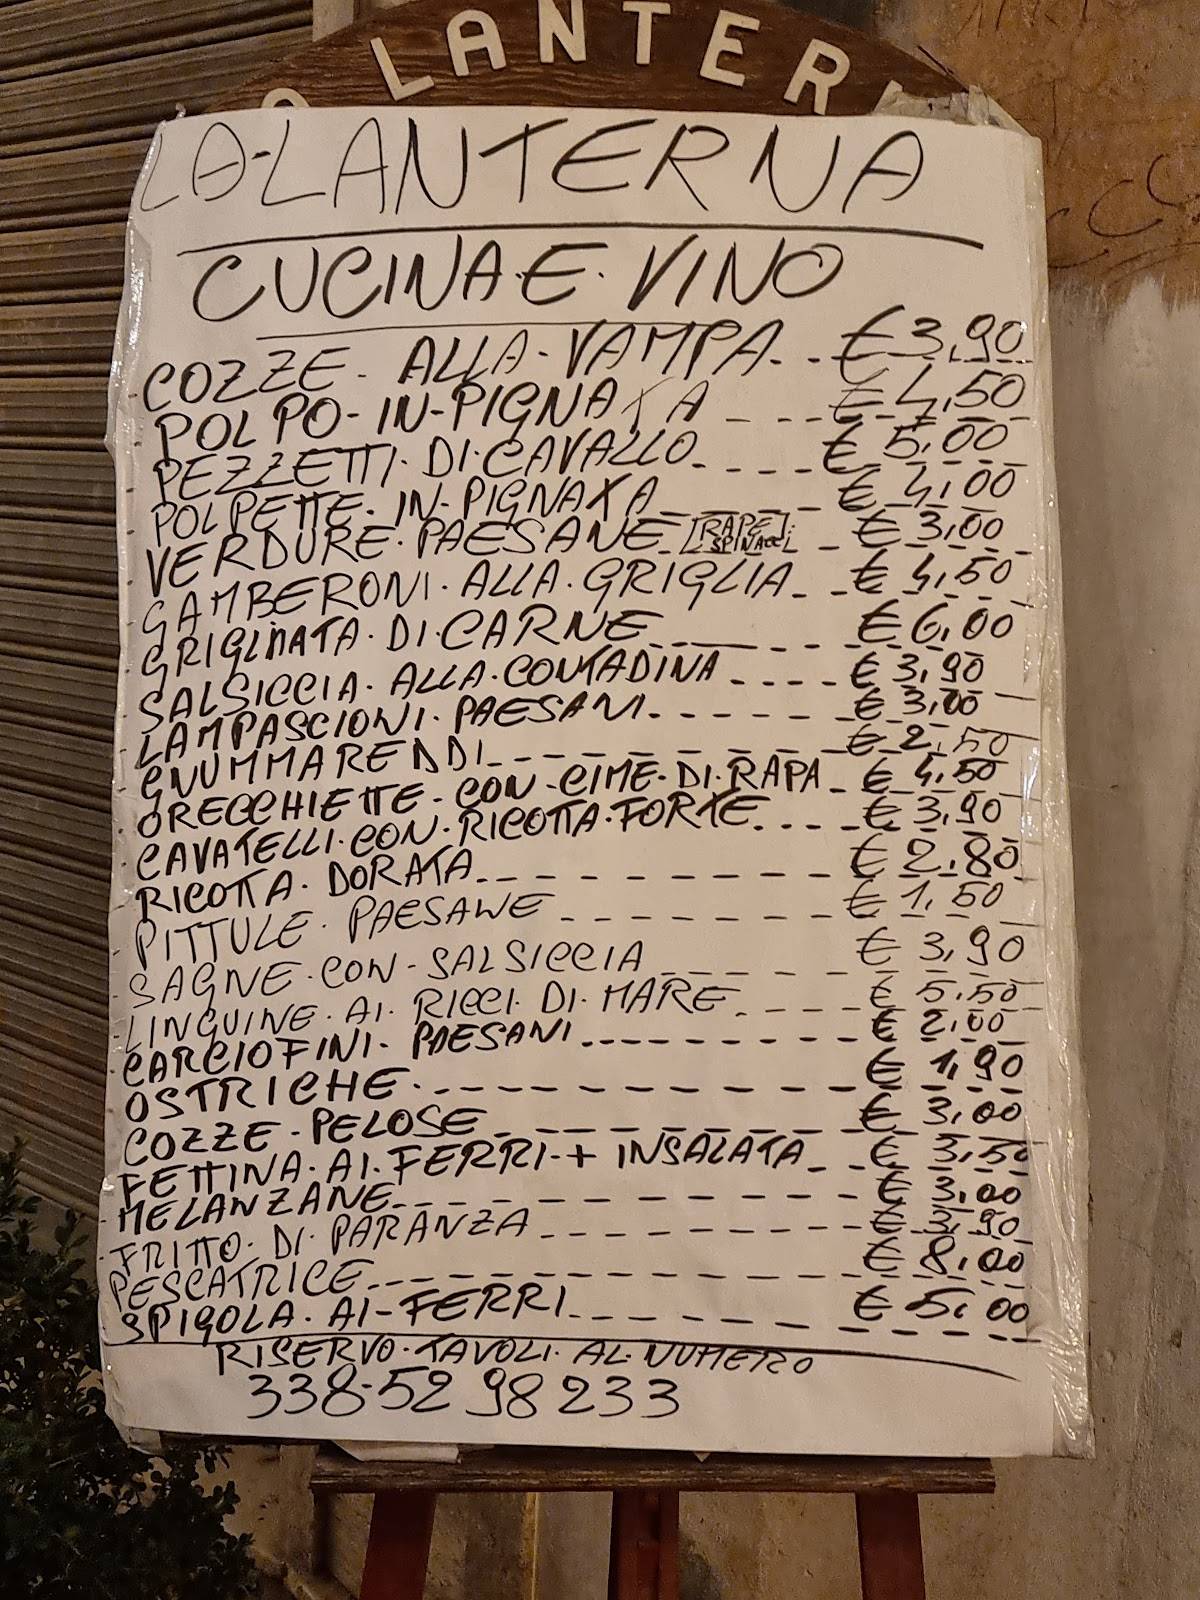 LANTER
LA-LANTERNA
CUCINA·E·VINO
COZZE- ALLA-VAMPA. - - € 3,90
POLPO-IN-PIGNATA - - - - € 4,50
PEZZETTI·DI·CAVALLO - - - - € 5,00
POLPETTE-IN-PIGNATA - - - - € 4,00
VERDURE·PAESANE - [RAPE SPINACI] - € 3,00
GAMBERONI·ALLA·GRIGLIA - - € 4,50
GRIGLIATA·DI·CARNE - - - - € 6,00
SALSICCIA·ALLA·CONTADINA - - - - € 3,90
LAMPASCIONI·PAESANI - - - - € 3,00
GNUMMAREDDI - - - - € 2,50
ORECCHIETTE-CON-CIME-DI-RAPA - € 4,50
CAVATELLI·CON·RICOTTA·FORTE - - - € 3,90
RICOTTA·DORATA - - - - € 2,80
PITTULE·PAESANE - - - - € 1,50
SAGNE·CON-SALSICCIA - - - - € 3,90
LINGUINE·AI·RICCI·DI·MARE - - - - € 5,50
CARCIOFINI·PAESANI - - - - € 2,00
OSTRICHE - - - - € 1,90
COZZE-PELOSE - - - - € 3,00
FETTINA·AI·FERRI-+ INSALATA - - € 3,50
MELANZANE - - - - € 3,00
FRITTO·DI·PARANZA - - - - € 3,90
PESCATRICE - - - - € 8,00
SPIGOLA·AI-FERRI - - - - € 5,00
RISERVO·TAVOLI·AL·NUMERO
338-5298233